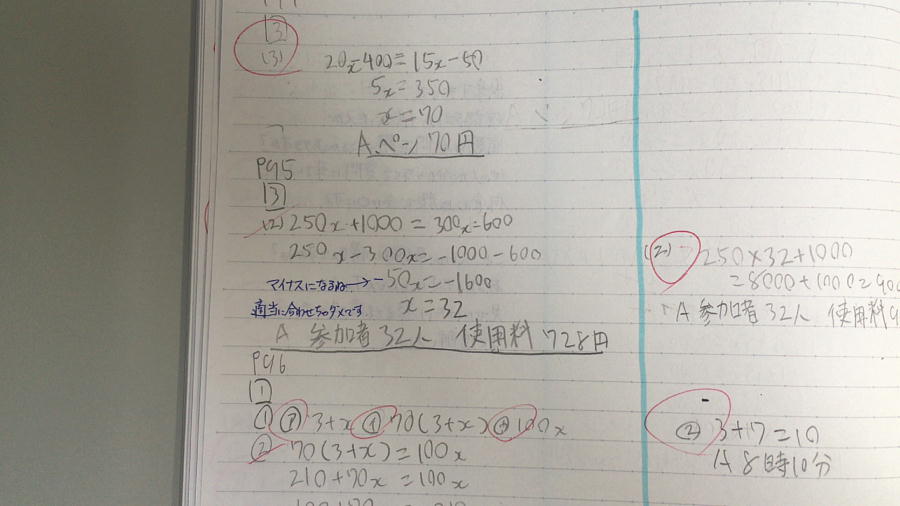 [3]
(3) 20x-400=15x-50
5x=350
x=70
A.ペン 70円
P95
[3]
(2) 250x+1000=300x-600
250x-300x=-1000-600
マイナスになるね→-50x=-1600
適当に合わせちゃダメです x=32
A 参加者32人 使用料 728円
P96
[1]
① ㋐ 3+x ㋑ 70(3+x) ㋒ 100x
② 70(3+x)=100x
210+70x=100x
(2) 250×32+1000
=8000+1000=900
A 参加者32人 使用料9
② 3+7=10
A 8時10分